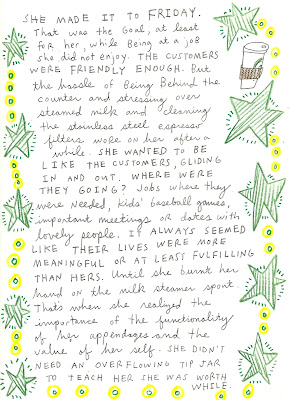 SHE MADE IT TO FRIDAY.
That was the Goal, at least
for her, while Being at a job
she did not enjoy. THE CUSTOMERS
WERE FRIENDLY ENOUGH. But
the hassle of Being Behind the
counter and stressing over
steamed milk and cleaning
the stainless steel espresso
filters wore on her after a
while. SHE WANTED TO BE
LIKE THE CUSTOMERS, GLIDING
IN AND OUT. WHERE WERE
THEY GOING? Jobs where they
were Needed, kids' baseball games,
important meetings or dates with
lovely people. IT ALWAYS SEEMED
LIKE THEIR LIVES WERE MORE
MEANINGFUL OR AT LEAST FULFILLING
THAN HERS. Until she burnt her
hand on the milk steamer spout.
Thats when she realized the
importance of the functionality
of her appendages and the
value of her self. SHE DIDN'T
NEED AN OVERFLOWING TIP JAR
TO TEACH HER SHE WAS WORTH
WHILE.